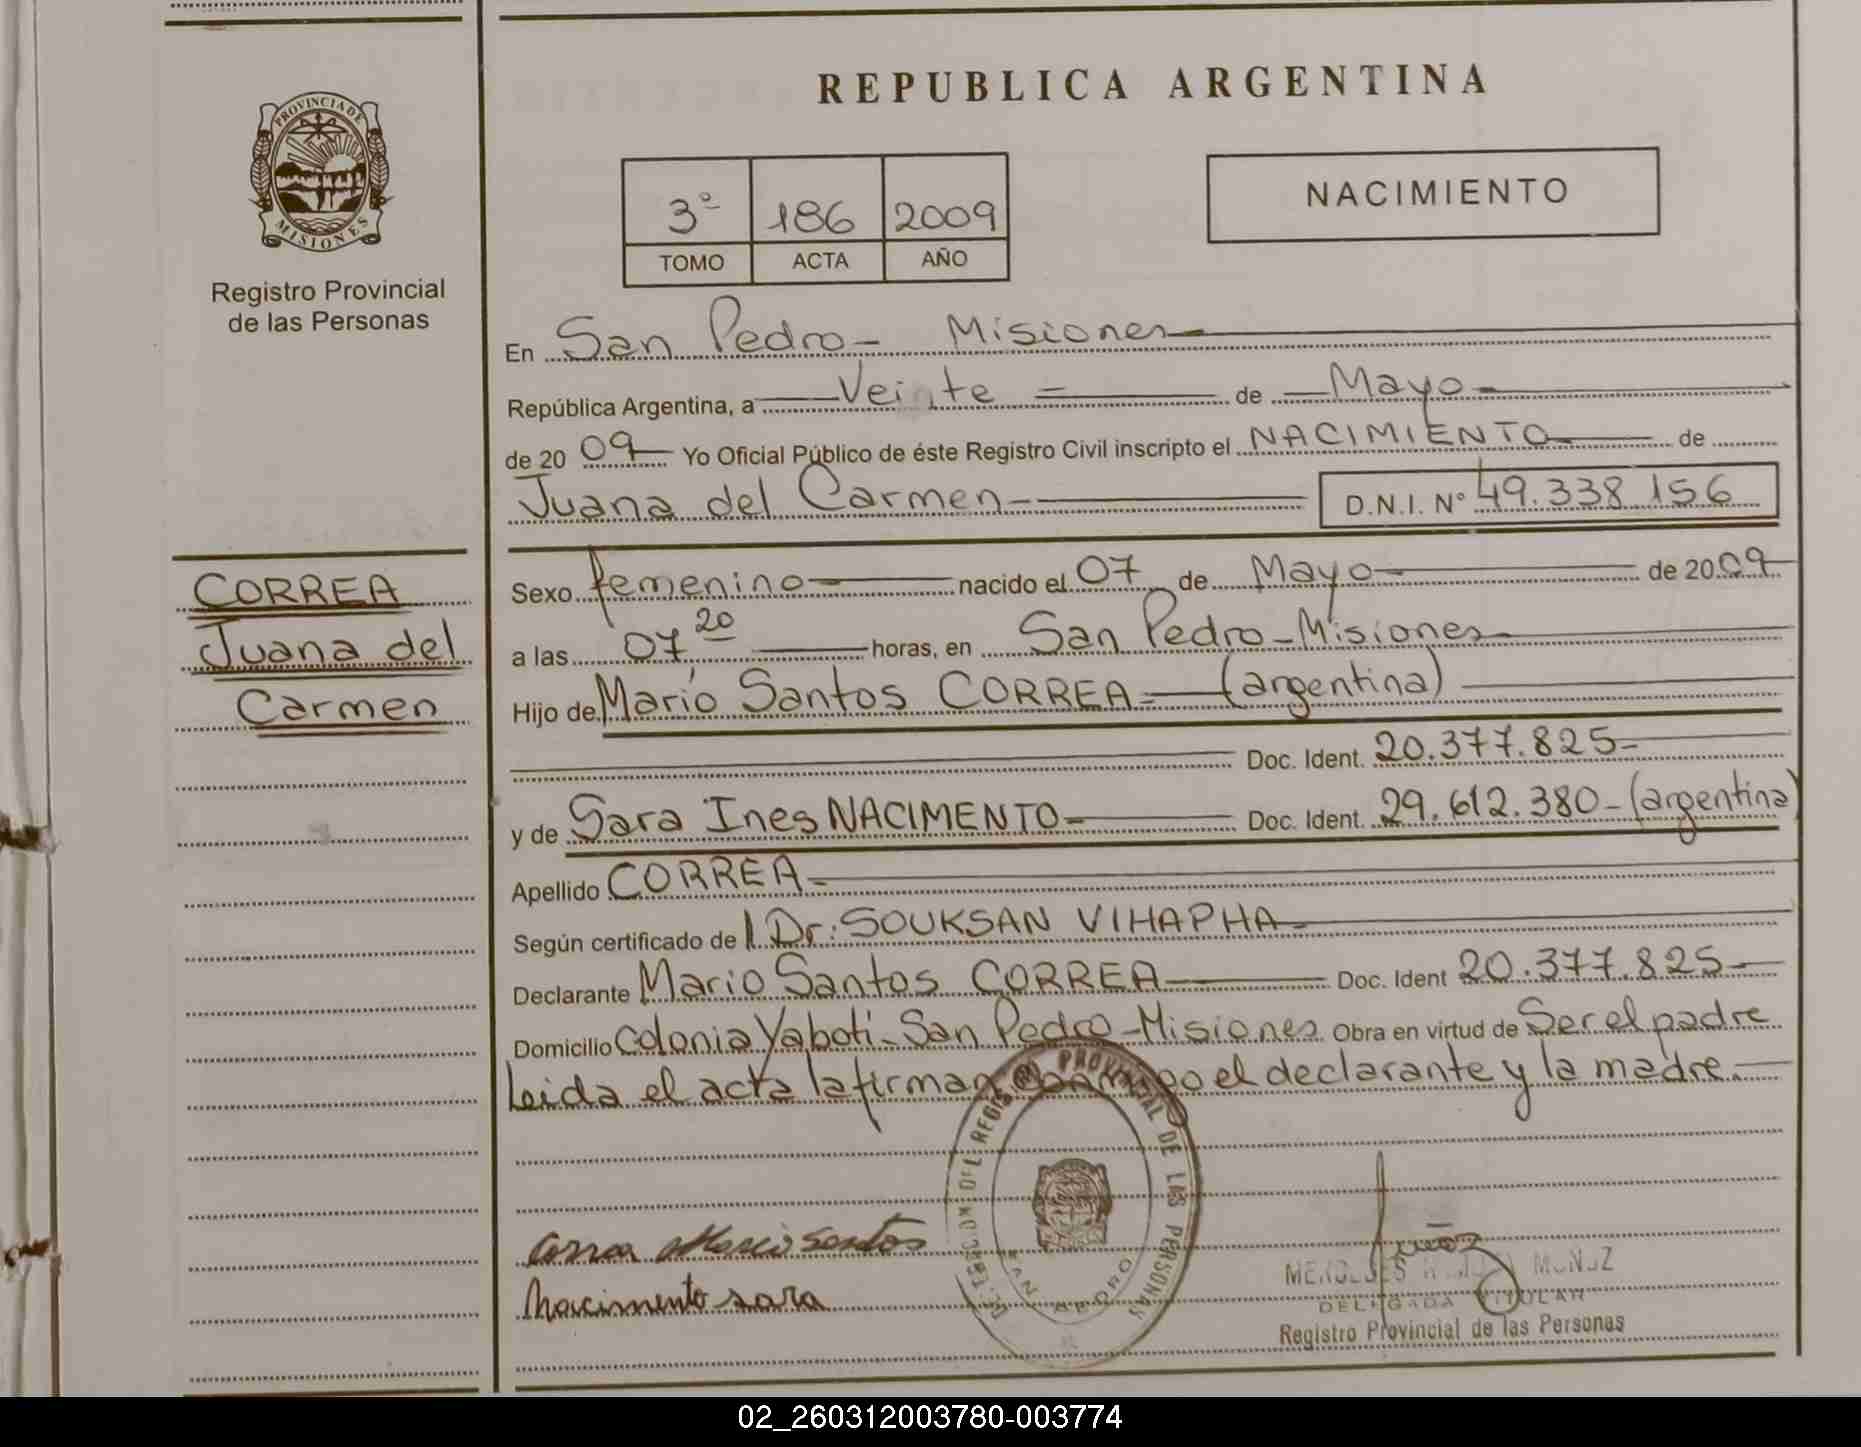 PROVINCIA DE
MISIONES
Registro Provincial
de las Personas
CORREA
Juana del
Carmen
REPUBLICA ARGENTINA
3º 186 2009
TOMO ACTA AÑO
NACIMIENTO
En San Pedro - Misiones
República Argentina, a Veinte = de Mayo -
de 20 09 Yo Oficial Público de éste Registro Civil inscripto el NACIMIENTO de
Juana del Carmen - D.N.I. Nº 49.338.156
Sexo femenino nacido el 07 de Mayo de 20 09
a las 07 20 horas, en San Pedro - Misiones
Hijo de Mario Santos CORREA - (argentina)
Doc. Ident. 20.377.825-
y de Sara Ines NACIMENTO - Doc. Ident. 29.612.380- (argentina)
Apellido CORREA -
Según certificado de l Dr: SOUKSAN VIHAPHA
Declarante Mario Santos CORREA Doc. Ident 20.377.825-
Domicilio Colonia Yaboti - San Pedro - Misiones Obra en virtud de Ser el padre
Leida el acta la firman conmigo el declarante y la madre.
DIRECCION DEL REGISTRO PROVINCIAL DE LAS PERSONAS
SAN PEDRO
Correa Mario Santos
Nacimento sara
MUÑOZ
DELEGADA TITULAR
Registro Provincial de las Personas
02_260312003780-003774